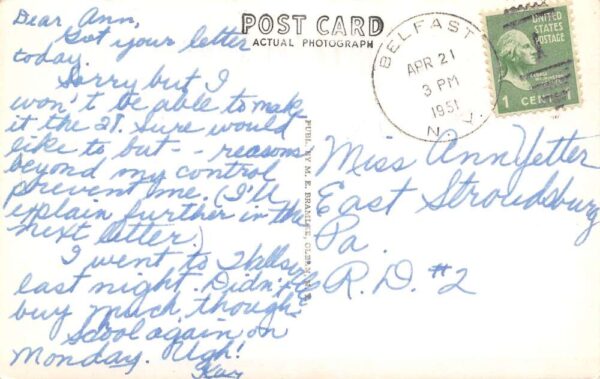 Dear Ann,
Got your letter
today.
Sorry but I
won't be able to make
it the 28. Sure would
like to but -- reasons
beyond my control
prevent me. (I'll
explain further in the
next letter.)
I went to
last night. Didn't
buy much, though.
School again on
Monday. Ugh!
Kay
POST CARD
ACTUAL PHOTOGRAPH
PUBL. BY M. E.
BELFAST
APR 21
3 PM
1951
N. Y.
UNITED
STATES
POSTAGE
1 CENT
Miss Ann Yetter
East Stroudsburg
Pa.
R.D. #2